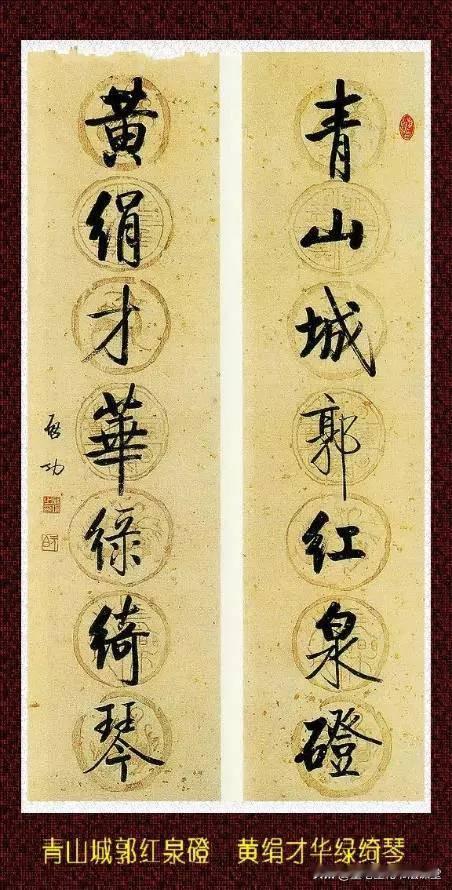 青山城郭红泉磴
黄绢才華绿绮琴
啟功
青山城郭红泉磴 黄绢才华绿绮琴